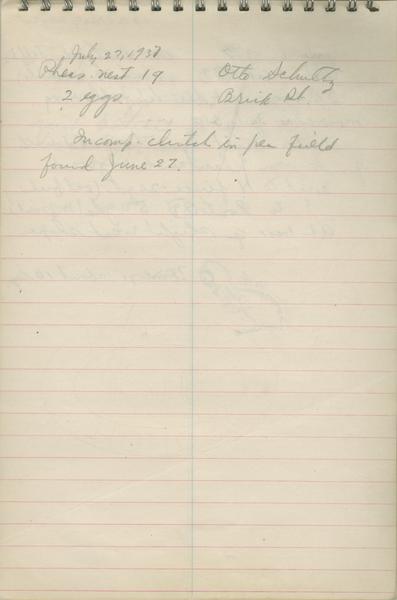 July 27, 1937
Pheas. nest 19 Otto Schultz
2 eggs. Brick Rd.
Incomp. clutch in pea field
found June 27.